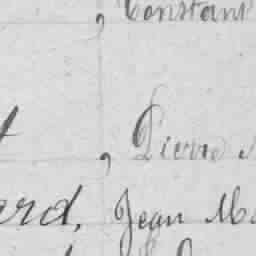 , Constant
t, Pierre M
ard, Jean Ma